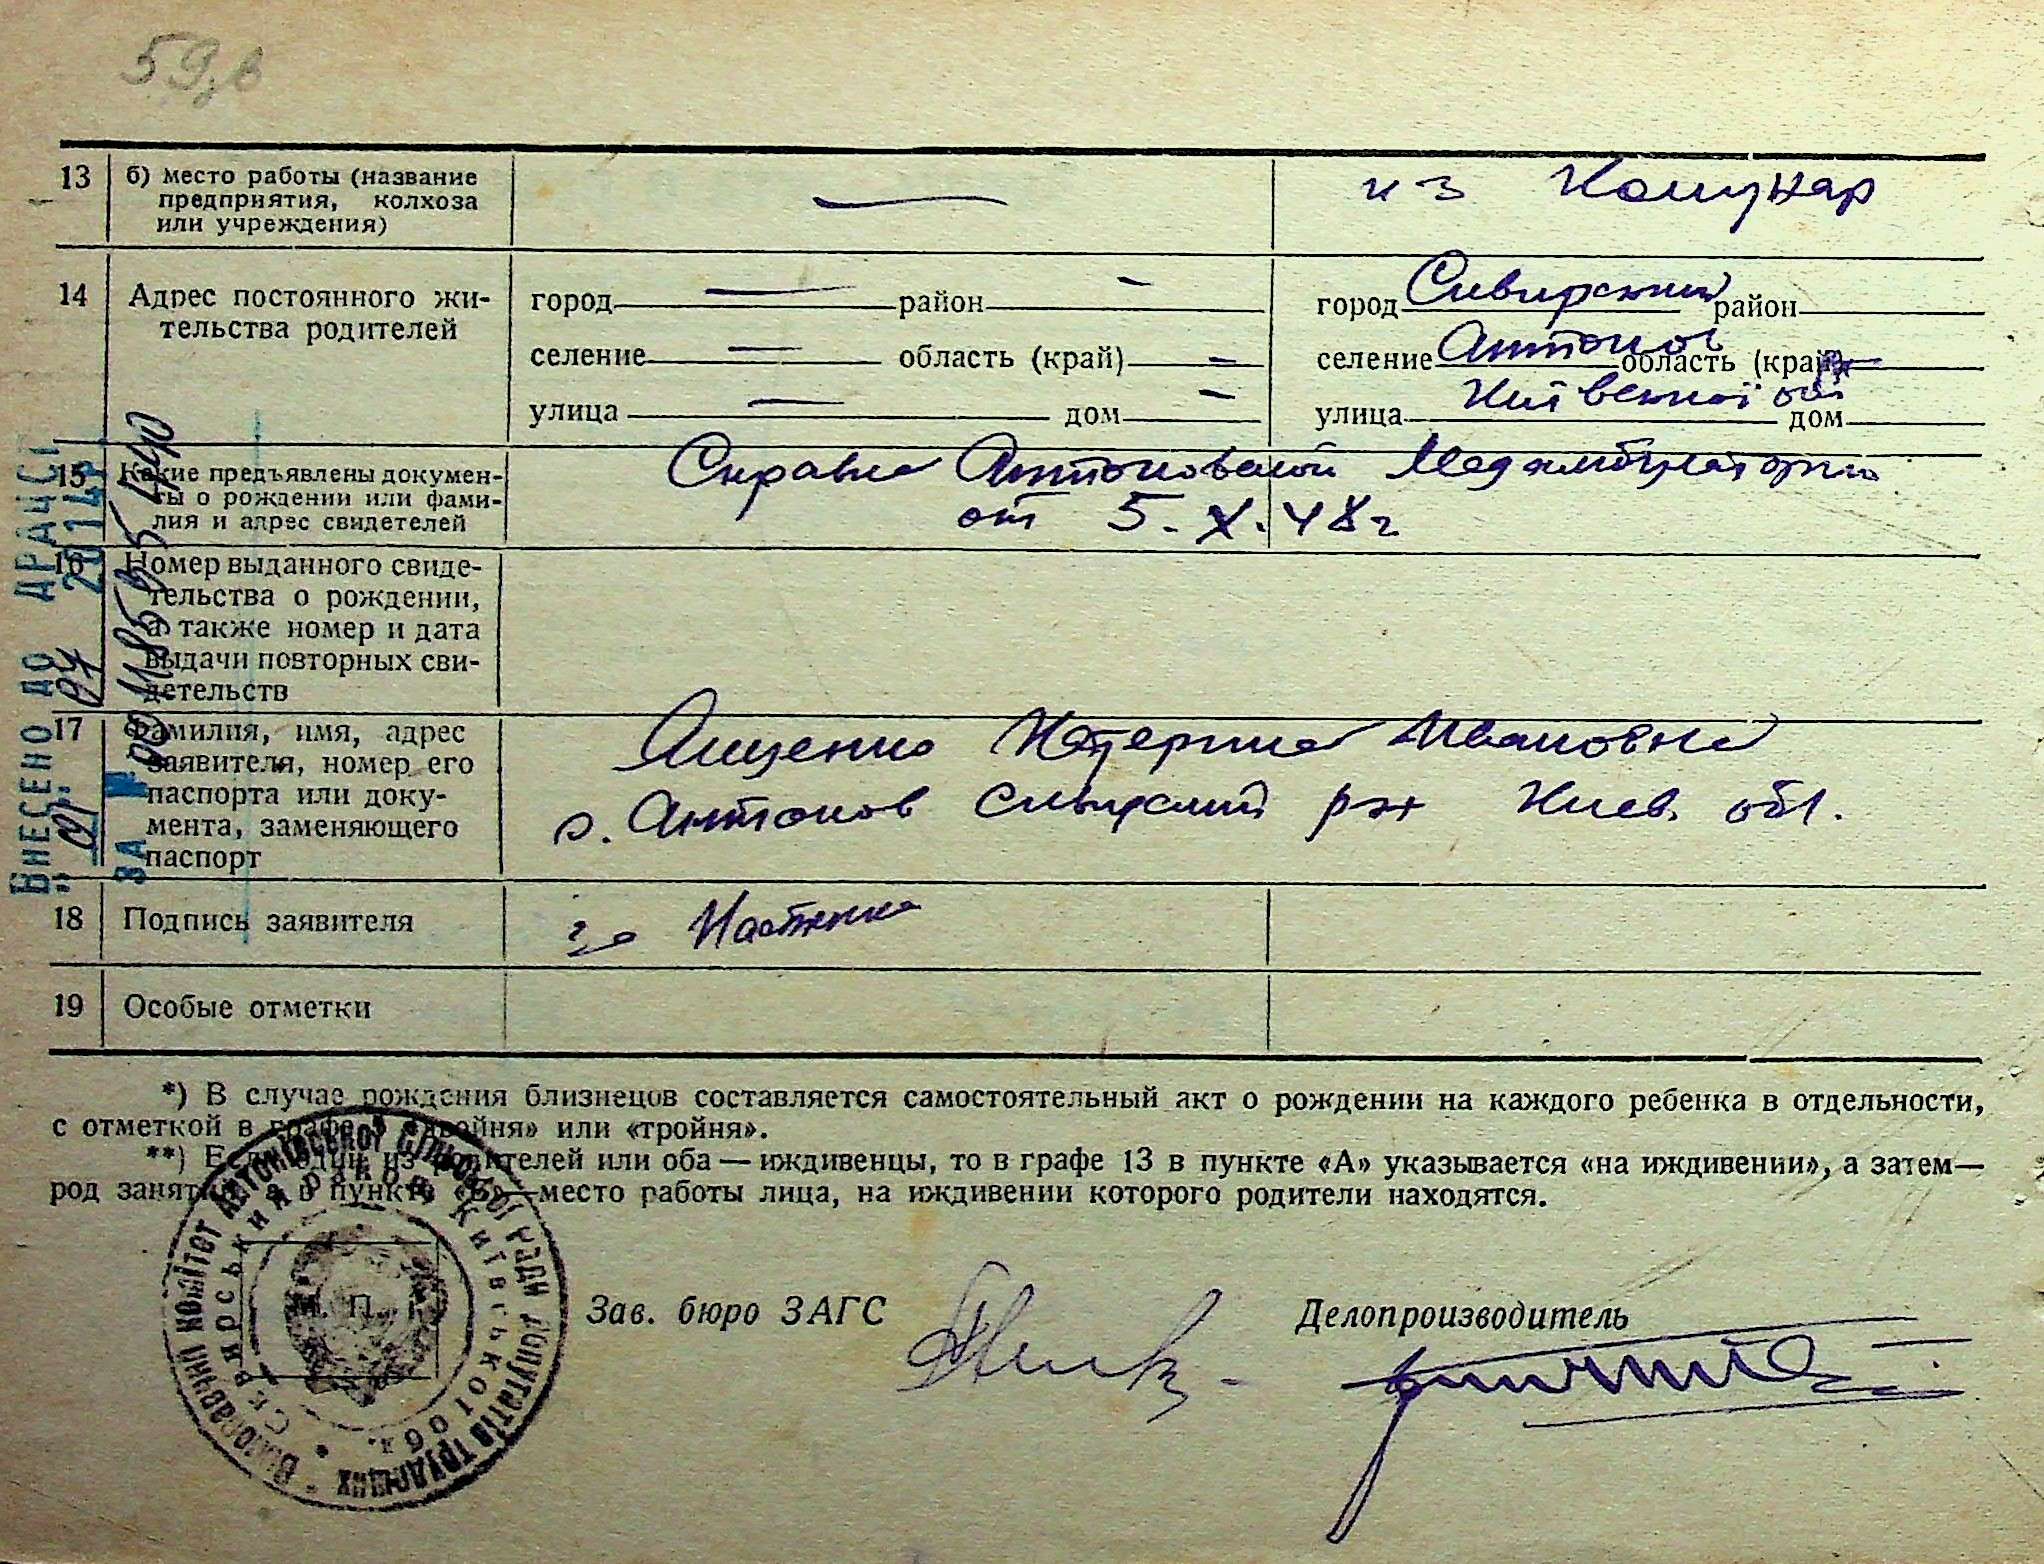 59
13 б) место работы (название
предприятия, колхоза
или учреждения)
к-з Комунар
14 Адрес постоянного жи-
тельства родителей
город — район —
селение — область (край) —
улица — дом —
город Сквирский район
селение Антонов область (край)
улица Київської обл дом
15 Какие предъявлены докумен-
ты о рождении или фами-
лия и адрес свидетелей
Справка Антоновской
от 5.X.48 г
16 Номер выданного свиде-
тельства о рождении,
а также номер и дата
выдачи повторных сви-
детельств
17 Фамилия, имя, адрес
заявителя, номер его
паспорта или доку-
мента, заменяющего
паспорт
Ященко Катерина Ивановна
с. Антонов Сквирский р-н Киев. обл.
18 Подпись заявителя
19 Особые отметки
*) В случае рождения близнецов составляется самостоятельный акт о рождении на каждого ребенка в отдельности,
с отметкой в графе 5 «двойня» или «тройня».
**) Если один из родителей или оба — иждивенцы, то в графе 13 в пункте «А» указывается «на иждивении», а затем—
род занятий, а в пункте «Б»—место работы лица, на иждивении которого родители находятся.
М. П.
Зав. бюро ЗАГС
Делопроизводитель
Виконавчий комітет Антонівської сільської ради депутатів трудящих
Сквирський район Київської обл.
ВНЕСЕНО ДО ДРАЦСГ
ЗА №